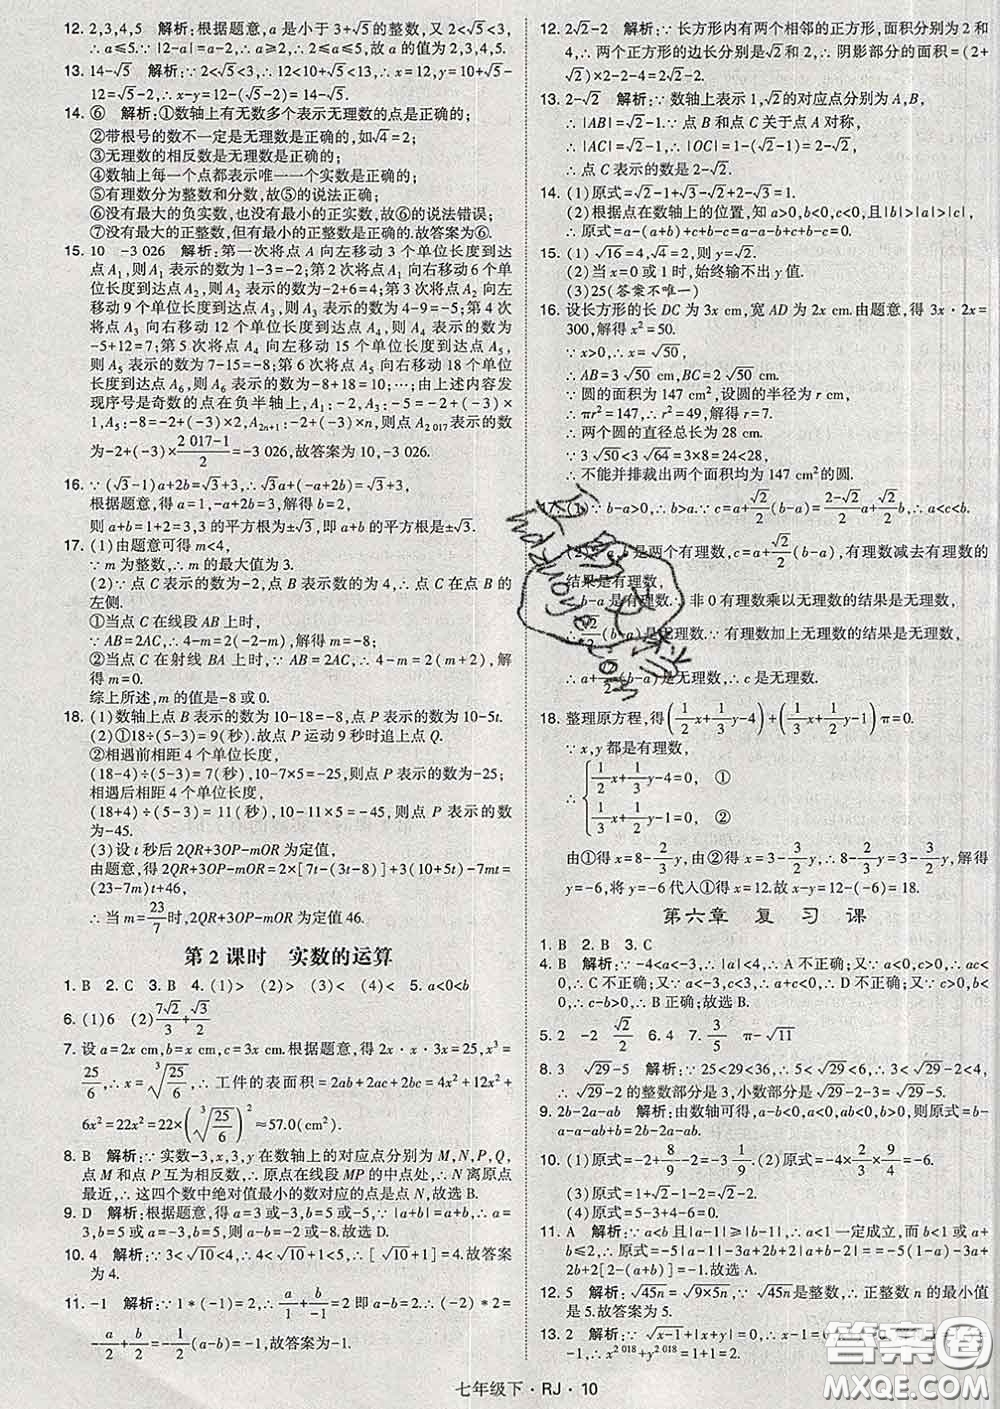 12. 2,3,4,5　解析:根据题意,a 是小于 1+√5 的整数,∵2<√5<3,
∴a≤5.∵|2-a|=a-2,∴a≥2,∴2≤a≤5,故 a 的值为 2,3,4,5.
13. 14-√5　解析:∵2<√5<3,∴12<10+√5<13,∴x=12,y=10+√5-
12=√5-2,∴x-y=12-(√5-2)=14-√5.
14. ⑥　解析:①数轴上有无数多个表示无理数的点是正确的;
②带根号的数不一定是无理数是正确的,如√4=2;
③无理数的相反数是无理数是正确的;
④数轴上每一个点都表示唯一一个实数是正确的;
⑤有理数分为整数和分数,故⑤的说法正确;
⑥没有最大的负实数,也没有最小的正实数,故⑥的说法错误;
⑦没有最大的正整数,但有最小的正整数是正确的.故答案为⑥.
15. 10　-3 026　解析:第一次将点 A 向左移动 3 个单位长度到达
点 A₁,则 A₁ 表示的数为 1-3=-2;第 2 次将点 A₁ 向右移动 6 个单
位长度到达点 A₂,则 A₂ 表示的数为-2+6=4;第 3 次将点 A₂ 向左
移动 9 个单位长度到达点 A₃,则 A₃ 表示的数为 4-9=-5;第 4 次
将点 A₃ 向右移动 12 个单位长度到达点 A₄,则 A₄ 表示的数为
-5+12=7;第 5 次将点 A₄ 向左移动 15 个单位长度到达点 A₅,
则 A₅ 表示的数为 7-15=-8;第 6 次将点 A₅ 向右移动 18 个单位
长度到达点 A₆,则 A₆ 表示的数为-8+18=10;…;由上述内容发
现序号是奇数的点在负半轴上,A₁:-2,A₃:-5=-2+(-3)×
1,A₅:-8=-2+(-3)×2,A₂ₙ₊₁:-2+(-3)×n,则点 A₂₀₁₇ 表示的数
为-2+(-3)×(2 017-1)/2=-3 026,故答案为 10,-3 026.
16. ∵(√3-1)a+2b=√3+3,∴√3a+(-a+2b)=√3+3,
根据题意,得 a=1,-a+2b=3,解得 b=2,
则 a+b=1+2=3,3 的平方根为±√3,即 a+b 的平方根为±√3.
17. (1)由题意可得 m<4,
∵m 为整数,∴m 的最大值为 3.
(2)∵点 C 表示的数为-2,点 B 表示的数为 4,∴点 C 在点 B 的
左侧.
①当点 C 在线段 AB 上时,
∵AB=2AC,∴4-m=2(-2-m),解得 m=-8;
②当点 C 在射线 BA 上时,∵AB=2AC,∴4-m=2(m+2),解得
m=0.
综上所述,m 的值是-8 或 0.
18. (1)数轴上点 B 表示的数为 10-18=-8,点 P 表示的数为 10-5t.
(2)①18÷(5-3)=9(秒).故点 P 运动 9 秒时追上点 Q.
②相遇前相距 4 个单位长度,
(18-4)÷(5-3)=7(秒),10-5×7=-25,则点 P 表示的数为-25;
相遇后相距 4 个单位长度,
(18+4)÷(5-3)=11(秒),10-5×11=-45,则点 P 表示的数
为-45.
(3)设 t 秒后 2QR+3OP-mOR 为定值,
由题意,得 2QR+3OP-mOR=2×[7t-(3t-8)]+3(10+5t)-7mt=
(23-7m)t+46,
∴当 m=23/7 时,2QR+3OP-mOR 为定值 46.
第 2 课时　实数的运算
1. B　2. C　3. B　4. (1)>　(2)>　(3)<　(4)<　5. a<0<b
6. (1)6　(2)7√2/3+√3/2
7. 设 a=2x cm,b=x cm,c=3x cm.根据题意,得 2x·x·3x=25,x³=
25/6,∴x=³√(25/6),∴工件的表面积=2ab+2ac+2bc=4x²+12x²+
6x²=22x²=22×(³√(25/6))²≈57.0(cm²).
8. B　解析:∵实数-3,x,3,y 在数轴上的对应点分别为 M,N,P,Q,
点 M 和点 P 互为相反数,∴原点在线段 MP 的中点处,∴N 离原点
最近,∴这四个数中绝对值最小的数对应的点是点 N.故选 B.
9. D　解析:根据题意,得 a=3 或-3,b=5 或-5,∵|a+b|=a+b,∴a=
3,b=5 或 a=-3,b=5,则 a-b=-2 或-8.故选 D.
10. 4　解析:∵3<√10<4,∴4<√10+1<5,∴[√10+1]=4.故答案
为 4.
11. -1　解析:∵1*(-1)=2,∴a/1+b/-1=2 即 a-b=2,∴(-2)*2=
a/-2+b/2=-1/2(a-b)=-1,故答案为-1.
12. 2√2-2　解析:∵长方形内有两个相邻的正方形,面积分别为 2 和
4,∴两个正方形的边长分别是√2和 2,∴阴影部分的面积=(2+
√2)×2-2-4=2√2-2.
13. 2-√2　解析:∵数轴上表示 1,√2的对应点分别为 A,B,
∴|AB|=√2-1.∵点 B 和点 C 关于点 A 对称,
∴|AC|=√2-1,∴|OC|=1-(√2-1)=2-√2,
∴点 C 表示的数是 2-√2.
14. (1)原式=√2-1+√3-√2+2-√3=1.
(2)根据点在数轴上的位置,知 a>0,b<0,c<0,且|b|>|a|>|c|,
∴原式=a-(a+b)+c+(b-c)=a-a-b+c+b-c=0.
15. (1)√16=4,√4=2,则 y=√2.
(2)当 x=0 或 1 时,始终输不出 y 值.
(3)25(答案不唯一)
16. 设长方形的长 DC 为 3x cm,宽 AD 为 2x cm.由题意,得 3x·2x=
300,解得 x²=50.
∵x>0,∴x=√50,
∴AB=3√50 cm,BC=2√50 cm.
∵圆的面积为 147 cm²,设圆的半径为 r cm,
∴πr²=147,∴r²=49,解得 r=7.
∴两个圆的直径总长为 28 cm.
∵3√50<3√64=3×8=24<28,
∴不能并排裁出两个面积均为 147 cm² 的圆.
17. (1)∵b-a>0,∴b>a.∵c=a+√2/2(b-a)=(2-√2)/2a+√2/2b,∴a<c<b.
b 是两个有理数,c=a+√2/2(b-a),有理数减去有理数的
结果是有理数,
b-a 是有理数.∵非 0 有理数乘以无理数的结果是无理数,
∴√2/2(b-a)是无理数.∵有理数加上无理数的结果是无理数,
∴a+√2/2(b-a)是无理数,∴c 是无理数.
18. 整理原方程,得(1/2x+1/3y-4)+(1/3x+1/2y-1)π=0.
∵x,y 都是有理数,
∴{1/2x+1/3y-4=0,　①
1/3x+1/2y-1=0,　②
由①得 x=8-2/3y,由②得 x=3-3/2y,∴8-2/3y=3-3/2y,解得
y=-6,将 y=-6 代入①得 x=12.故 x-y=12-(-6)=18.
第六章　复　习　课
1. B　2. B　3. C
4. B　解析:∵-4<a<-3,∴|a|<4,∴A 不正确;又∵a<0,c>0,∴ac<
0,∴C 不正确;又∵a<-3,c>0,∴a+c<0,∴D 不正确;又∵c>0,
b<0,∴c-b>0,∴B 正确;故选 B.
5. 2　-2　√2/2　6. 4　7. 3/5　π-√11
8. 3　√29-5　解析:∵25<29<36,∴5<√29<6,∴3<√29-2<4,
∴√29-2 的整数部分是 3,小数部分是√29-2-3=√29-5.
9. 2b-2a-ab　解析:由数轴可得,a-b<0,a<0,ab>0,b>0,则原式=b-
a-a-ab+b=2b-2a-ab.
10. (1)原式=-2+8/9-2=-3 1/9.　(2)原式=-4×2/3×9/4=-6.
(3)原式=1+√2-1+2-√2=2.　(4)原式=√2-1.
11. A　解析:∵a<b 且|a-1|≥|b-1|,∴a<1 一定成立,而 b<1 或 a+
b≤2,∴原式=-5|a-1|-3a+2b+2|a+b-2|==-5(1-a)-3a+
2b+2[2-(a+b)]=-1.故选 A.
12. 5　解析:∵√45n=√9×5n,∵√45n是整数,∴正整数 n 的最小值
是 5.故答案为 5.
13. 2　解析:∵√x-1+|x+y|=0,
七年级下·RJ·10
答案圈
MXQE.COM